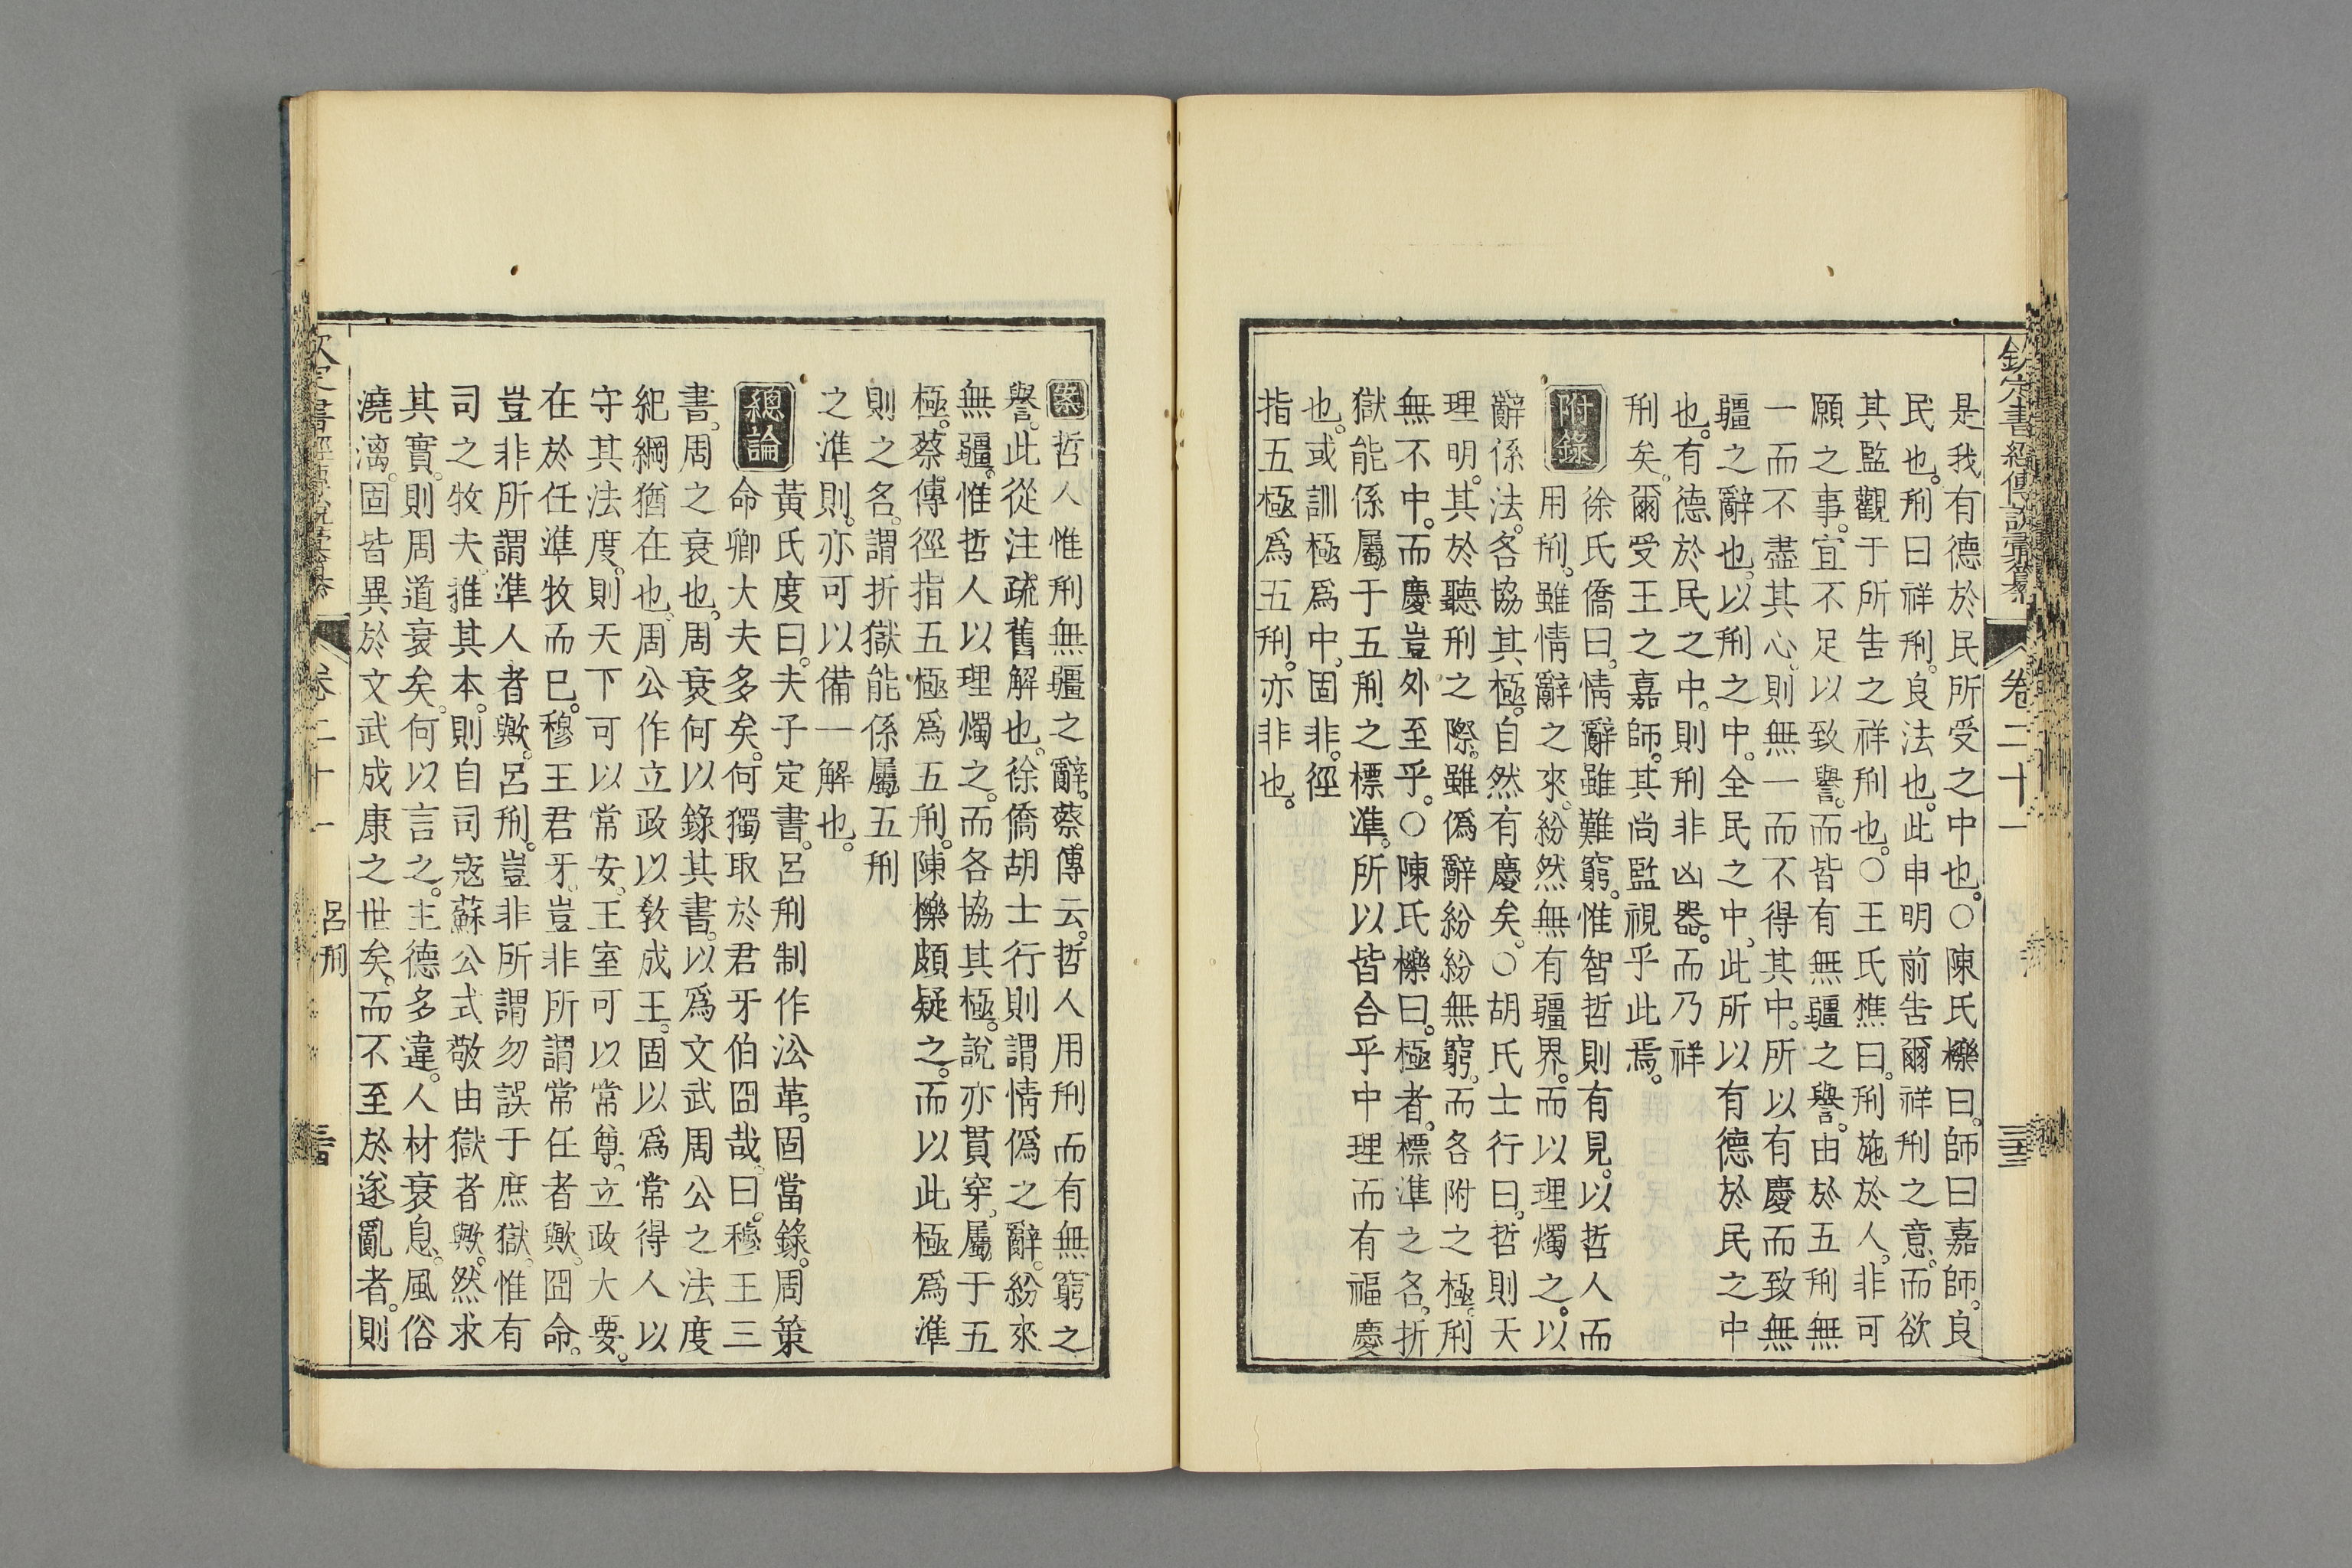 欽定書經傳說彙纂　卷二十一　三三
是我有德於民所受之中也。○陳氏櫟曰。師曰嘉師。良
民也。刑曰祥刑。良法也。此申明前吿爾祥刑之意。而欲
其監觀于所吿之祥刑也。○王氏樵曰。刑施於人。非可
願之事。宜不足以致譽。而皆有無疆之譽。由於五刑無
一而不盡其心。則無一而不得其中。所以有慶而致無
疆之辭也。以刑之中。全民之中。此所以有德於民之中
也。有德於民之中。則刑非凶器。而乃祥
刑矣。爾受王之嘉師。其尚監視乎此焉。
附錄　徐氏僑曰。情辭雖難窮。惟智哲則有見。以哲人而
用刑。雖情辭之來。紛然無有疆界。而以理燭之。以
辭係法。各協其極。自然有慶矣。○胡氏士行曰。哲則天
理明。其於聽刑之際。雖僞辭紛紛無窮。而各附之極。刑
無不中。而慶豈外至乎。○陳氏櫟曰。極者。標準之名。折
獄能係屬于五刑之標準。所以皆合乎中理而有福慶
也。或訓極爲中。固非。徑
指五極爲五刑。亦非也。
案哲人惟刑無疆之辭。蔡傳云。哲人用刑而有無窮之
譽。此從注疏舊解也。徐僑胡士行則謂情僞之辭。紛來
無疆。惟哲人以理燭之。而各協其極。說亦貫穿。屬于五
極。蔡傳徑指五極爲五刑。陳櫟頗疑之。而以此極爲準
則之名。謂折獄能係屬五刑
之準則。亦可以備一解也。
總論　黃氏度曰。夫子定書。呂刑制作㳂革。固當錄。周策
命卿大夫多矣。何獨取於君牙伯囧哉。曰。穆王三
書。周之衰也。周衰何以錄其書。以爲文武周公之法度
紀綱猶在也。周公作立政以敎成王。固以爲常得人以
守其法度。則天下可以常安。王室可以常尊。立政大要。
在於任準牧而已。穆王君牙。豈非所謂常任者歟。囧命。
豈非所謂準人者歟。呂刑。豈非所謂勿誤于庶獄。惟有
司之牧夫。推其本。則自司寇蘇公式敬由獄者歟。然求
其實。則周道衰矣。何以言之。主德多違。人材衰息。風俗
澆漓。固皆異於文武成康之世矣。而不至於遂亂者。則
欽定書經傳說彙纂　卷二十一　呂刑　三四